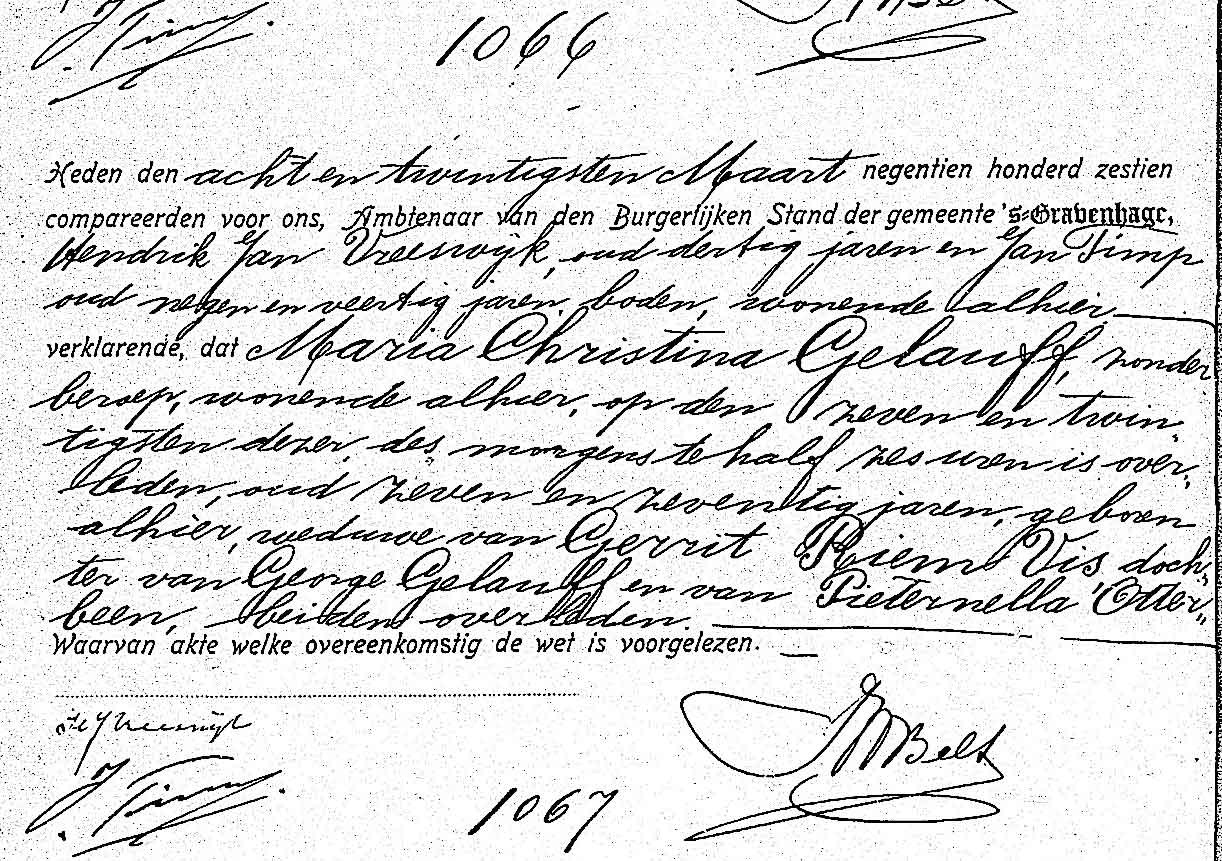 J. Timp
1066
Heden den acht en twintigsten Maart negentien honderd zestien
compareerden voor ons, Ambtenaar van den Burgerlijken Stand der gemeente 's-Gravenhage,
Hendrik Jan Vreeswijk, oud dertig jaren en Jan Timp
oud negen en veertig jaren, boden, wonende alhier,
verklarende, dat Maria Christina Gelauff, zonder
beroep, wonende alhier, op den zeven en twin„
tigsten dezer, des morgens te half zes uren is over„
leden, oud zeven en zeventig jaren, geboren
alhier, weduwe van Gerrit Riem Vis doch„
ter van George Gelauff en van Pieternella Otter„
been, beiden overleden.
Waarvan akte welke overeenkomstig de wet is voorgelezen.
H J Vreeswijk
Belt
J. Timp
1067